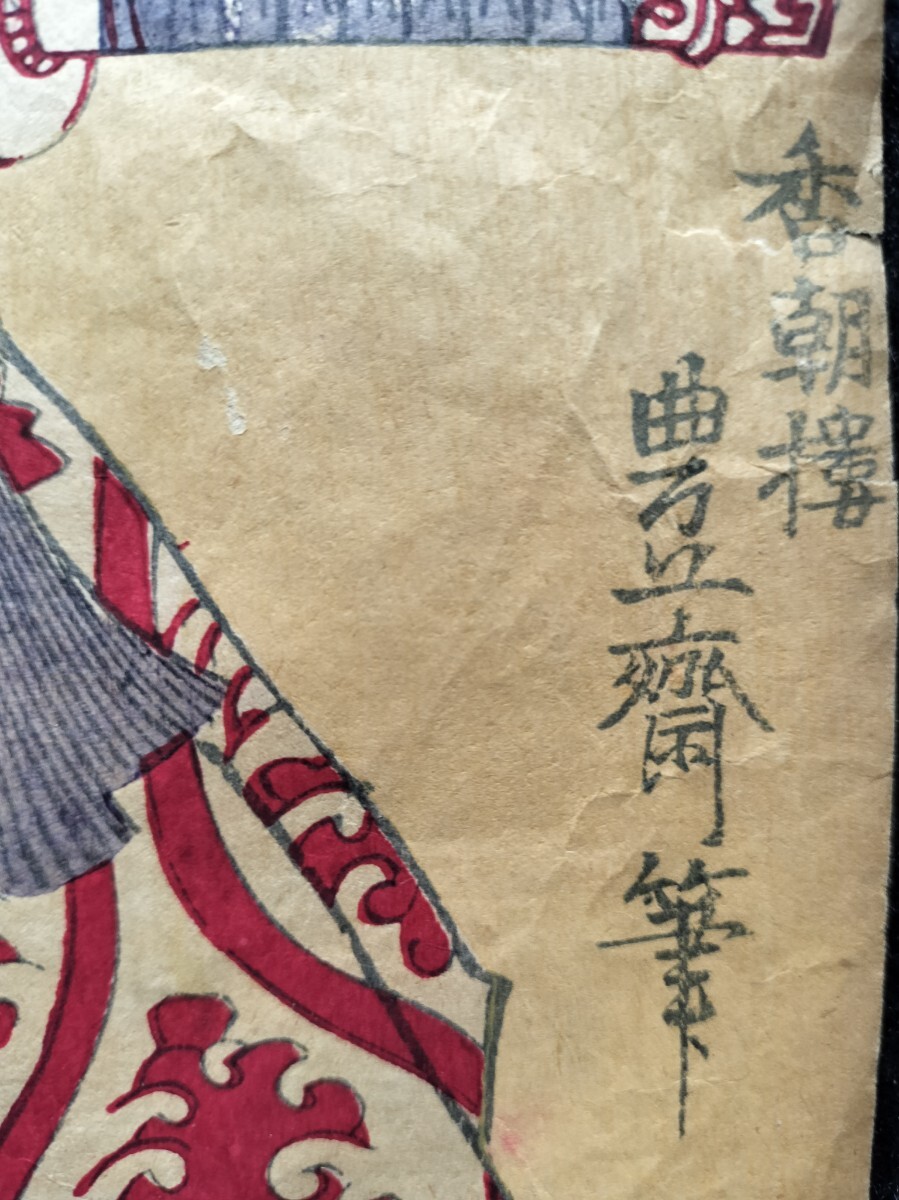 香朝樓
豊齋筆